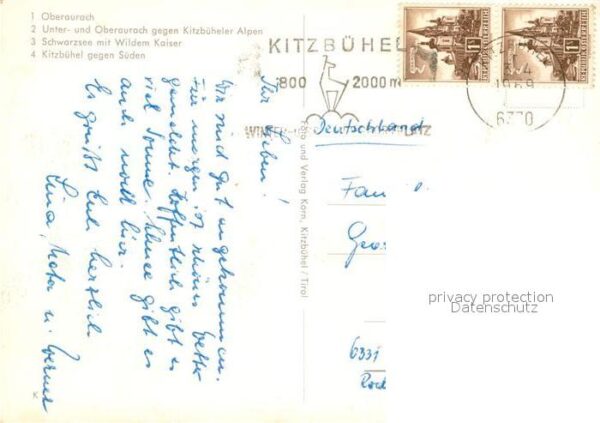 1 Oberaurach
2 Unter- und Oberaurach gegen Kitzbüheler Alpen
3 Schwarzsee mit Wildem Kaiser
4 Kitzbühel gegen Süden
KITZBÜHEL
800 2000 m
1969
6370
Ihr Lieben!
Wir sind gut angekommen.
Für morgen ist schönes Wetter
gemeldet. Hoffentlich gibt es
viel Sonne. Schnee gibt es
auch noch hier.
Es grüßt Euch herzlich
Foto und Verlag Korn, Kitzbühel / Tirol
Deutschland
Fam
6331
privacy protection
Datenschutz
K